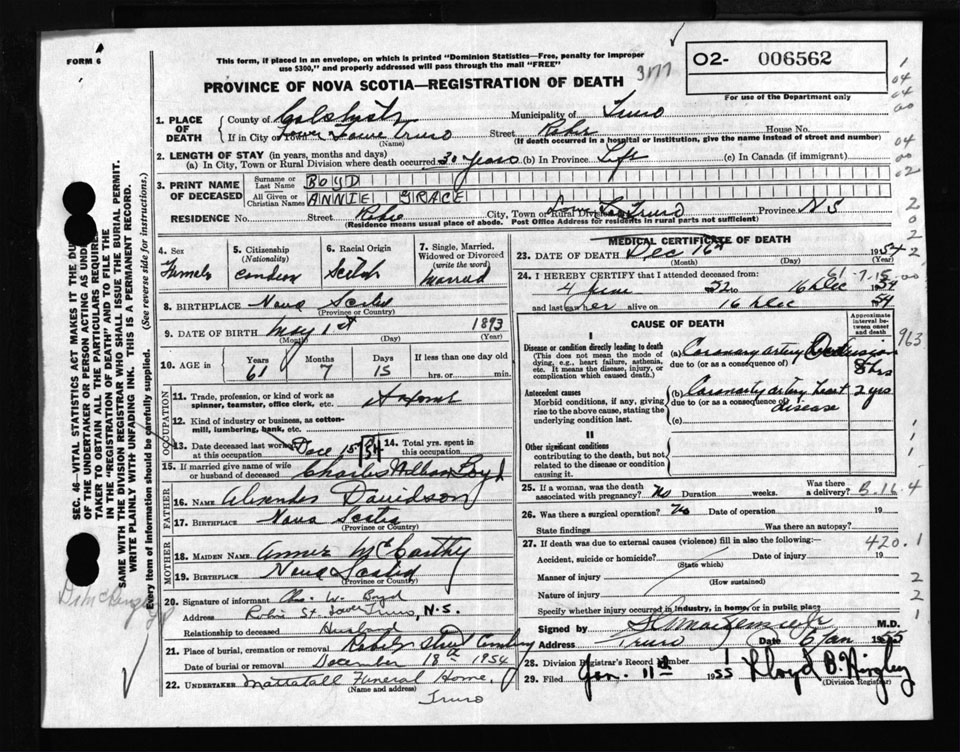 FORM 6
This form, if placed in an envelope, on which is printed "Dominion Statistics—Free, penalty for improper
use $300," and properly addressed will pass through the mail "FREE"
3177
O2- 006562
For use of the Department only
PROVINCE OF NOVA SCOTIA—REGISTRATION OF DEATH
1. PLACE OF DEATH
County of Colchester Municipality of Truro
If in City or Town Truro Street Robie House No.
(Name) (If death occurred in a hospital or institution, give the name instead of street and number)
2. LENGTH OF STAY (in years, months and days)
(a) In City, Town or Rural Division where death occurred 30 years (b) In Province Life (c) In Canada (if immigrant)
3. PRINT NAME OF DECEASED
Surname or Last Name BOYD
All Given or Christian Names ANNIE GRACE
RESIDENCE No. Street Robie City, Town or Rural Division Truro Province N S
(Residence means usual place of abode. Post Office Address for residents in rural parts not sufficient)
4. Sex
Female
5. Citizenship
(Nationality)
6. Racial Origin
Scotch
7. Single, Married, Widowed or Divorced
(write the word)
Married
8. BIRTHPLACE Nova Scotia
(Province or Country)
9. DATE OF BIRTH May 1st 1893
(Month) (Day) (Year)
10. AGE in
Years 61
Months 7
Days 15
If less than one day old
hrs. or min.
OCCUPATION
11. Trade, profession, or kind of work as
spinner, teamster, office clerk, etc.
12. Kind of industry or business, as cotten-
mill, lumbering, bank, etc.
13. Date deceased last worked at this occupation Dec 15 54
14. Total yrs. spent in this occupation
15. If married give name of wife
or husband of deceased Charles William Boyd
FATHER
16. NAME Alexander Davidson
17. BIRTHPLACE Nova Scotia
(Province or Country)
MOTHER
18. MAIDEN NAME McCarthy
19. BIRTHPLACE Nova Scotia
(Province or Country)
20. Signature of informant Chas. W. Boyd
Address Robie St. Lower Truro, N.S.
Relationship to deceased Husband
21. Place of burial, cremation or removal Robie Street Cemetery
Date of burial or removal December 18th 1954
22. UNDERTAKER Mattatall Funeral Home,
(Name and address)
Truro
MEDICAL CERTIFICATE OF DEATH
23. DATE OF DEATH Dec 16th 1954
(Month) (Day) (Year)
24. I HEREBY CERTIFY that I attended deceased from: 61-7-15
4 June 1952 to 16 Dec 1954
and last saw her alive on 16 Dec 1954
CAUSE OF DEATH
Approximate interval between onset and death
I
Disease or condition directly leading to death
(This does not mean the mode of
dying, e.g., heart failure, asthenia,
etc. It means the disease, injury, or
complication which caused death.)
(a) Coronary artery Occlusion
due to (or as a consequence of) 8 hrs
963
Antecedent causes
Morbid conditions, if any, giving
rise to the above cause, stating the
underlying condition last.
(b) Coronary artery heart 2 yrs
due to (or as a consequence of) disease
(c)
II
Other significant conditions
contributing to the death, but not
related to the disease or condition
causing it.
25. If a woman, was the death
associated with pregnancy? No Duration weeks. Was there a delivery? B.16
26. Was there a surgical operation? No Date of operation 19
State findings Was there an autopsy?
27. If death was due to external causes (violence) fill in also the following: 420.1
Accident, suicide or homicide? Date of injury 19
(State which)
Manner of injury
(How sustained)
Nature of injury
Specify whether injury occurred in industry, in home, or in public place
Signed by M.D.
Address Truro Date 6 Jan 1955
28. Division Registrar's Record Number 1
29. Filed Jan. 11th 1955 Lloyd B.
(Division Registrar)
SEC. 46—VITAL STATISTICS ACT MAKES IT THE DU
OF THE UNDERTAKER OR PERSON ACTING AS UND
TAKER TO OBTAIN ALL THE PARTICULARS REQUIRE
IN THE "REGISTRATION OF DEATH" AND TO FILE THE
SAME WITH THE DIVISION REGISTRAR WHO SHALL ISSUE THE BURIAL PERMIT.
WRITE PLAINLY WITH UNFADING INK. THIS IS A PERMANENT RECORD.
Every item of information should be carefully supplied. (See reverse side for instructions.)